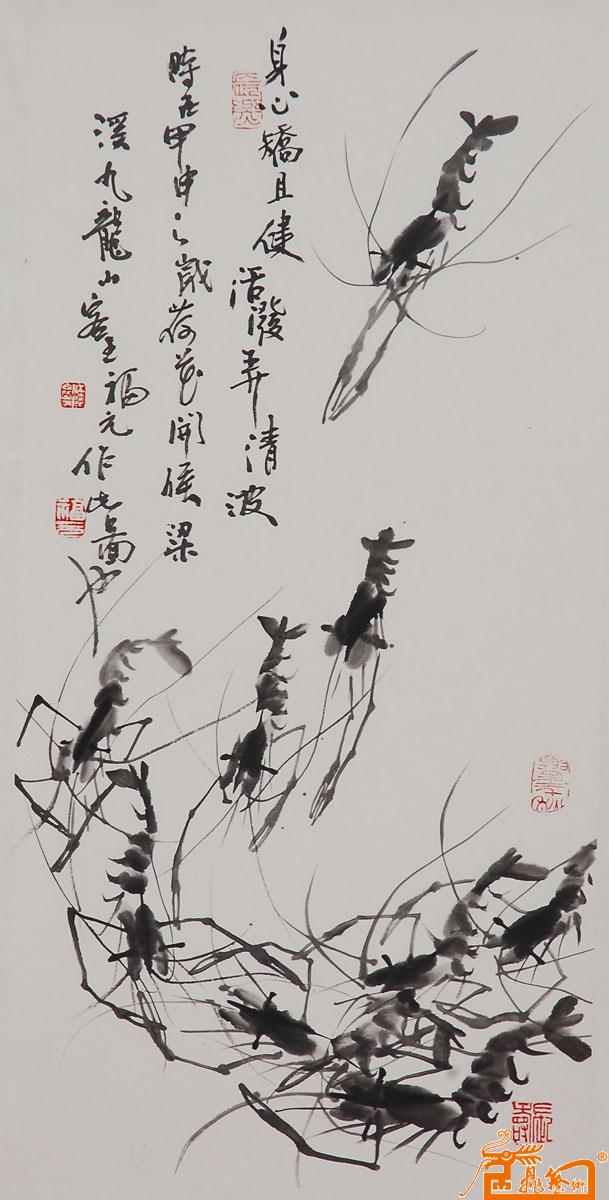 身心矯且健活潑弄清波
時在甲申之歲荷花開候梁
溪九龍山客王福元作此圖也